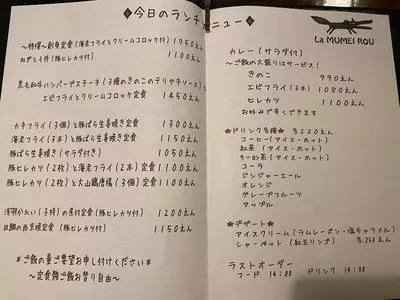 ◆今日のランチメニュー◆
〜特撰〜刺身定食(海老フライとクリームコロッケ付) 1750えん
ねぎとろ丼(豚ヒレカツ付) 1100えん
黒毛和牛ハンバーグステーキ(3種のきのこのテリヤキソース)と
エビフライとクリームコロッケ定食 1450えん
カキフライ(3個)と豚ばら生姜焼き定食 1300えん
海老フライ(2本)と豚ばら生姜焼き定食 1150えん
豚ばら生姜焼き(サラダ付き) 1050えん
豚ヒレカツ(2枚)と海老フライ(2本)定食 1100えん
豚ヒレカツ(2枚)と大山鶏唐揚(3個)定食 1100えん
浅羽かれい(子持)の煮付定食(豚ヒレカツ付) 1200えん
目鯛の西京焼定食(豚ヒレカツ付) 1150えん
*ご飯の量ご要望お申し付けください*
〜定食類ご飯お替り自由〜
La MUMEI ROU
カレー(サラダ付)
〜ご飯の大盛りはサービス!
きのこ 990えん
エビフライ(3本) 1080えん
ヒレカツ 1100えん
お好みで辛くできます
★ドリンク各種★ 各220えん
コーヒー(アイス・ホット)
紅茶(アイス・ホット)
ウーロン茶(アイス・ホット)
コーラ
ジンジャーエール
オレンジ
グレープフルーツ
アップル
★デザート★
アイスクリーム(ラムレーズン・塩キャラメル)
シャーベット(紅玉リンゴ) 各250えん
ラストオーダー
フード 14:00 ドリンク 14:30